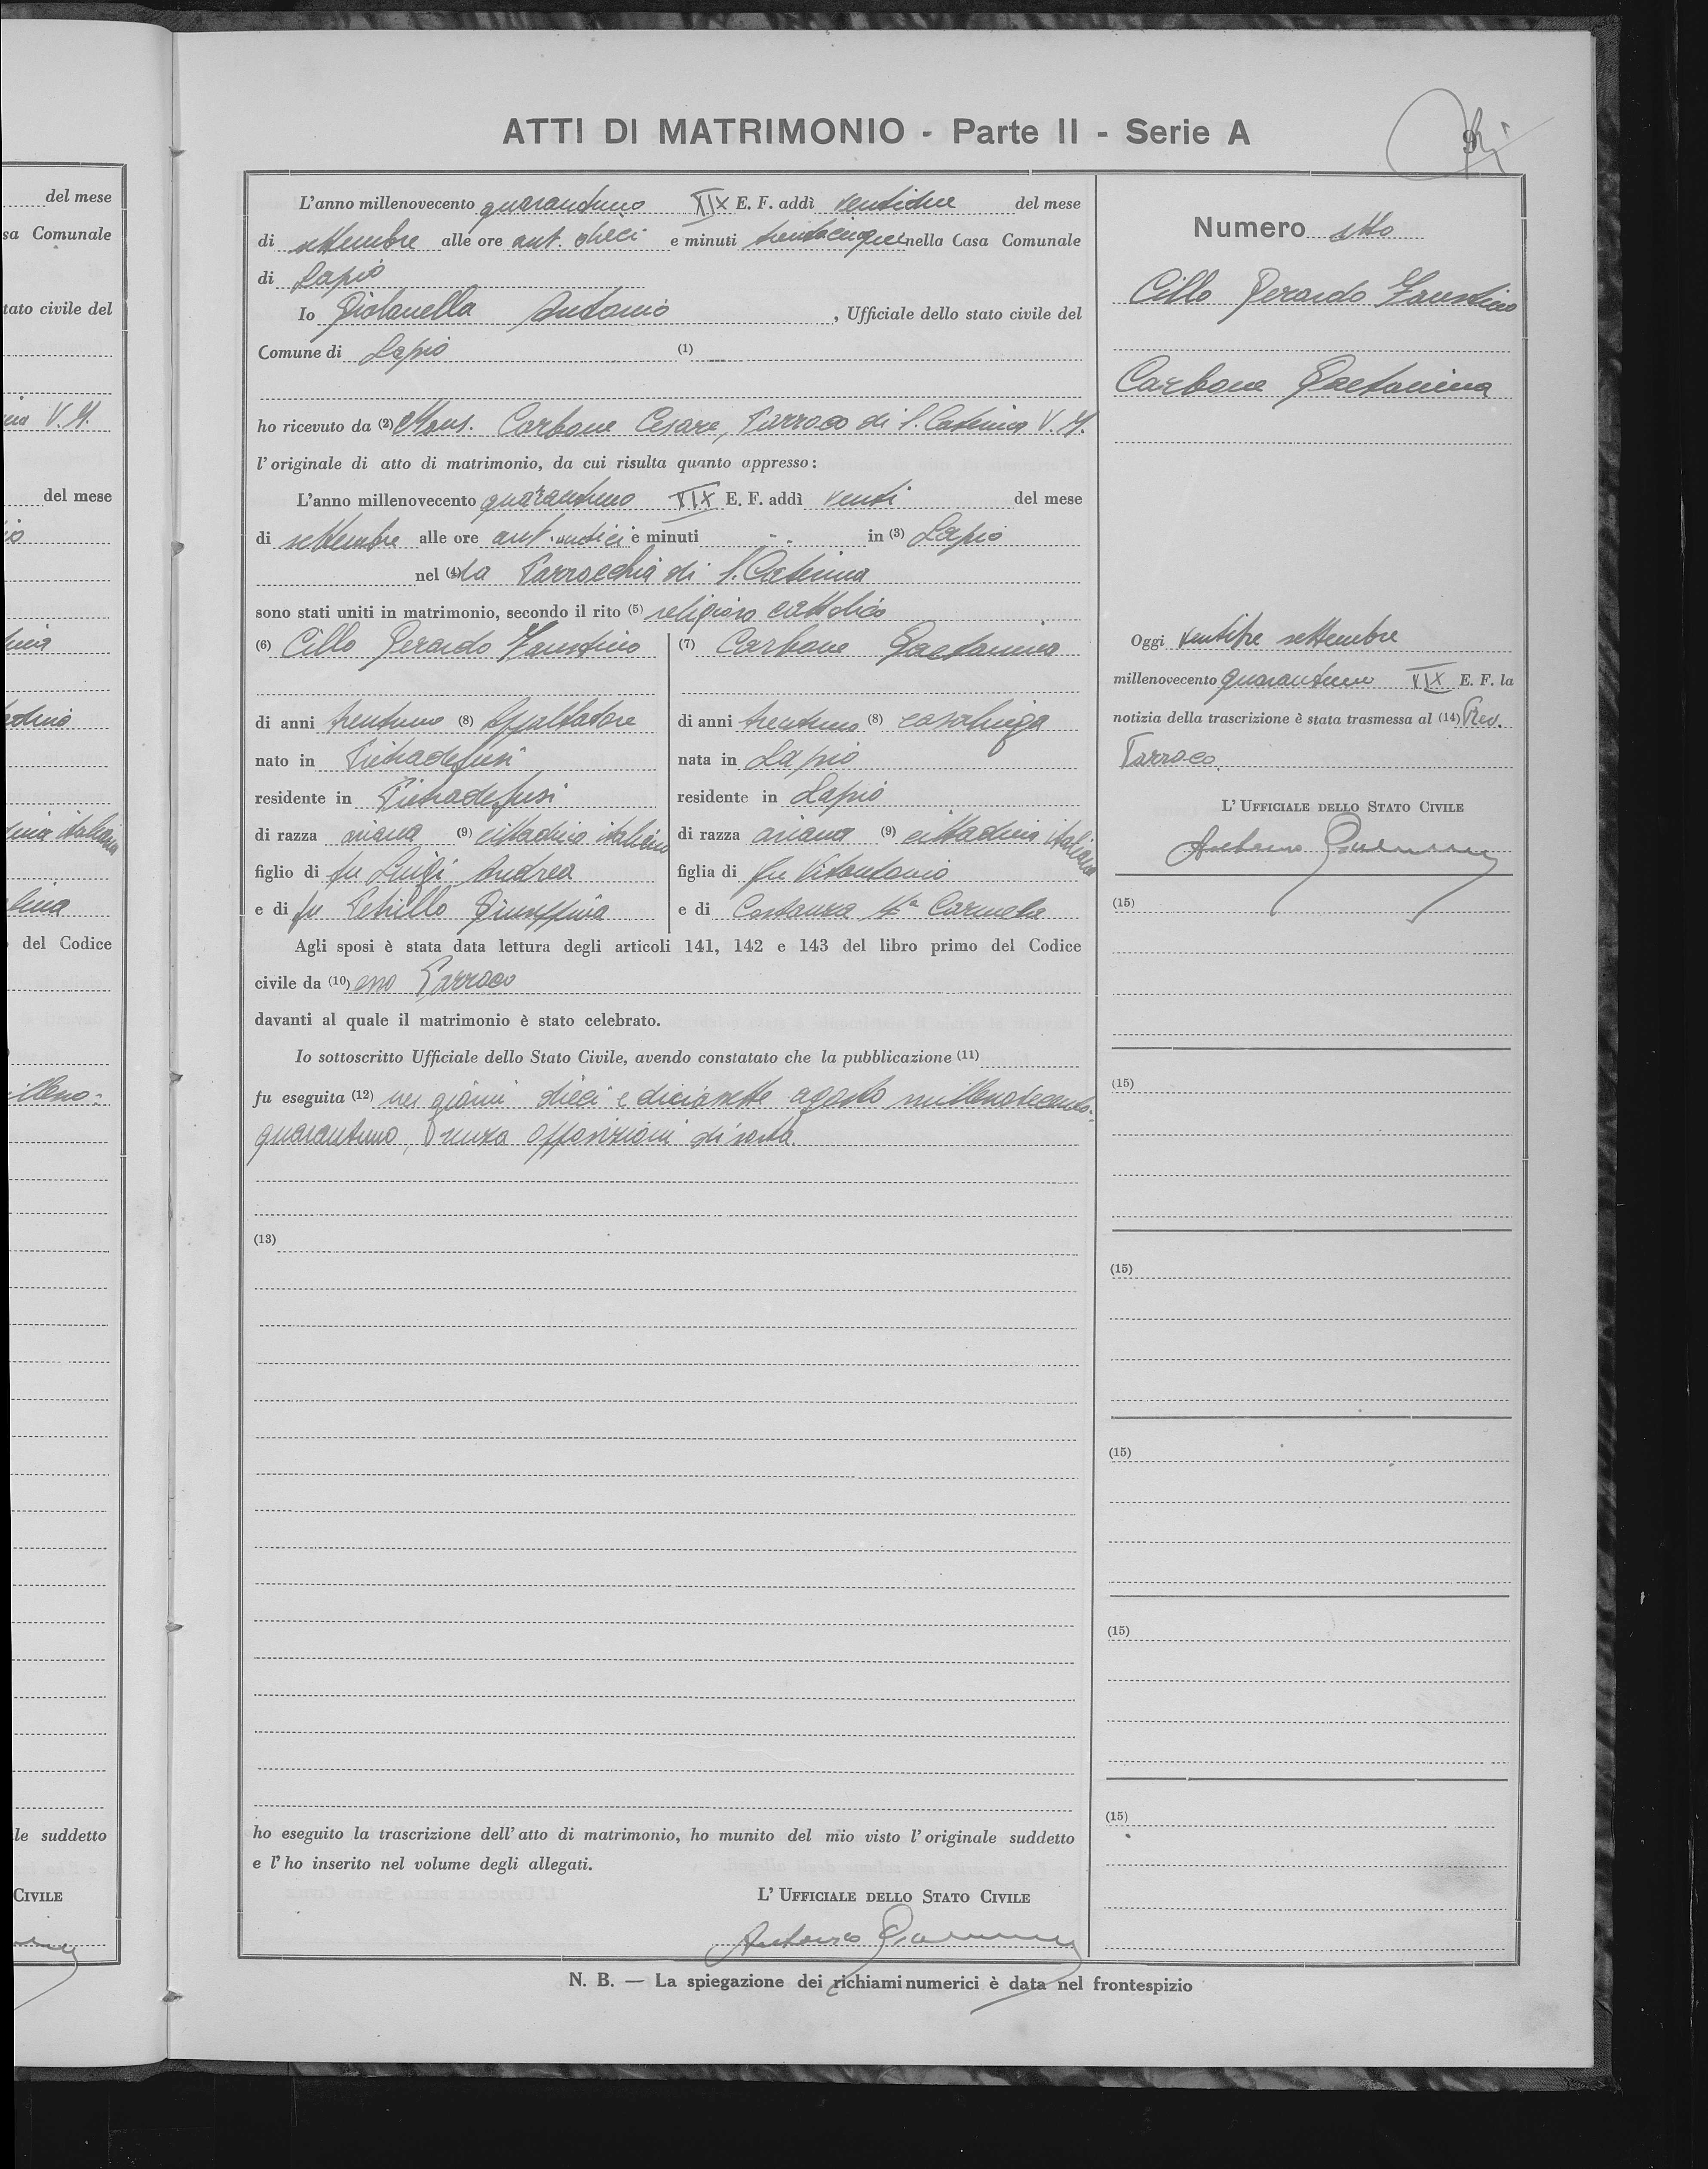 del mese
sa Comunale
tato civile del
V. M.
del mese
italiana
del Codice
le suddetto
CIVILE
ATTI DI MATRIMONIO - Parte II - Serie A
9
L'anno millenovecento quarantuno XIX E. F. addì ventidue del mese
di settembre alle ore ant. dieci e minuti trentacinque nella Casa Comunale
di Lapio
Io Antonio , Ufficiale dello stato civile del
Comune di Lapio (1)
ho ricevuto da (2) Mons. Carbone Cesare, Parroco di S. Caterina V. M.
l'originale di atto di matrimonio, da cui risulta quanto appresso:
L'anno millenovecento quarantuno XIX E. F. addì venti del mese
di settembre alle ore ant. undici e minuti - - in (3) Lapio
nel (4) la Parrocchia di S. Caterina
sono stati uniti in matrimonio, secondo il rito (5) religioso cattolico
(6) Cillo Gerardo Faustino
di anni trentuno (8) Appaltatore
nato in Pietradefusi
residente in Pietradefusi
di razza ariana (9) cittadino italiano
figlio di fu Luigi Andrea
e di fu Petrillo Giuseppina
(7) Carbone Gaetanina
di anni trentuno (8) casalinga
nata in Lapio
residente in Lapio
di razza ariana (9) cittadina italiana
figlia di fu Vitantonio
e di Costanza Ma Carmela
Agli sposi è stata data lettura degli articoli 141, 142 e 143 del libro primo del Codice
civile da (10) esso Parroco
davanti al quale il matrimonio è stato celebrato.
Io sottoscritto Ufficiale dello Stato Civile, avendo constatato che la pubblicazione (11)
fu eseguita (12) nei giorni dieci e diciassette agosto millenovecento-
quarantuno, senza opposizioni di sorta.
(13)
ho eseguito la trascrizione dell'atto di matrimonio, ho munito del mio visto l'originale suddetto
e l'ho inserito nel volume degli allegati.
L'UFFICIALE DELLO STATO CIVILE
Antonio
Numero otto
Cillo Gerardo Faustino
Carbone Gaetanina
Oggi ventitre settembre
millenovecento quarantuno XIX E. F. la
notizia della trascrizione è stata trasmessa al (14) Rev.
Parroco.
L'UFFICIALE DELLO STATO CIVILE
Antonio
(15)
(15)
(15)
(15)
(15)
(15)
N. B. — La spiegazione dei richiami numerici è data nel frontespizio